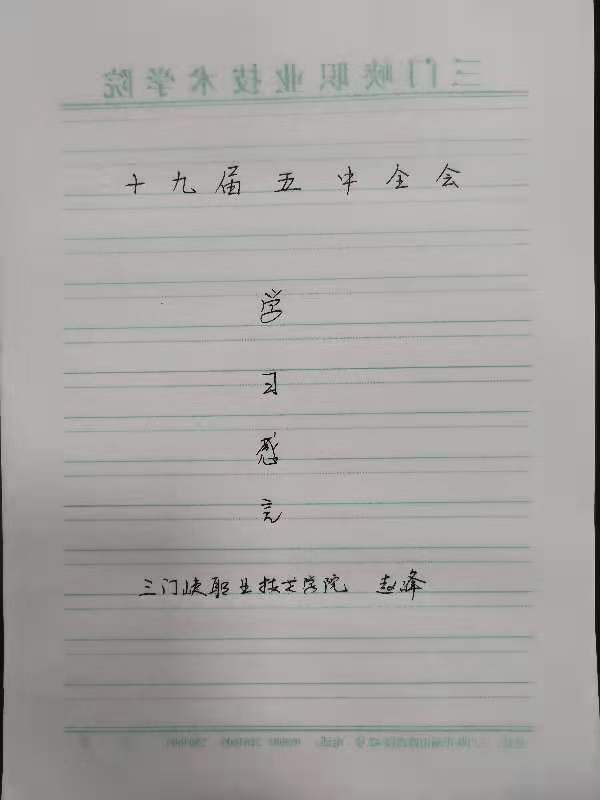 三门峡职业技术学院
十九届五中全会
学
习
感
言
三门峡职业技术学院 赵峰